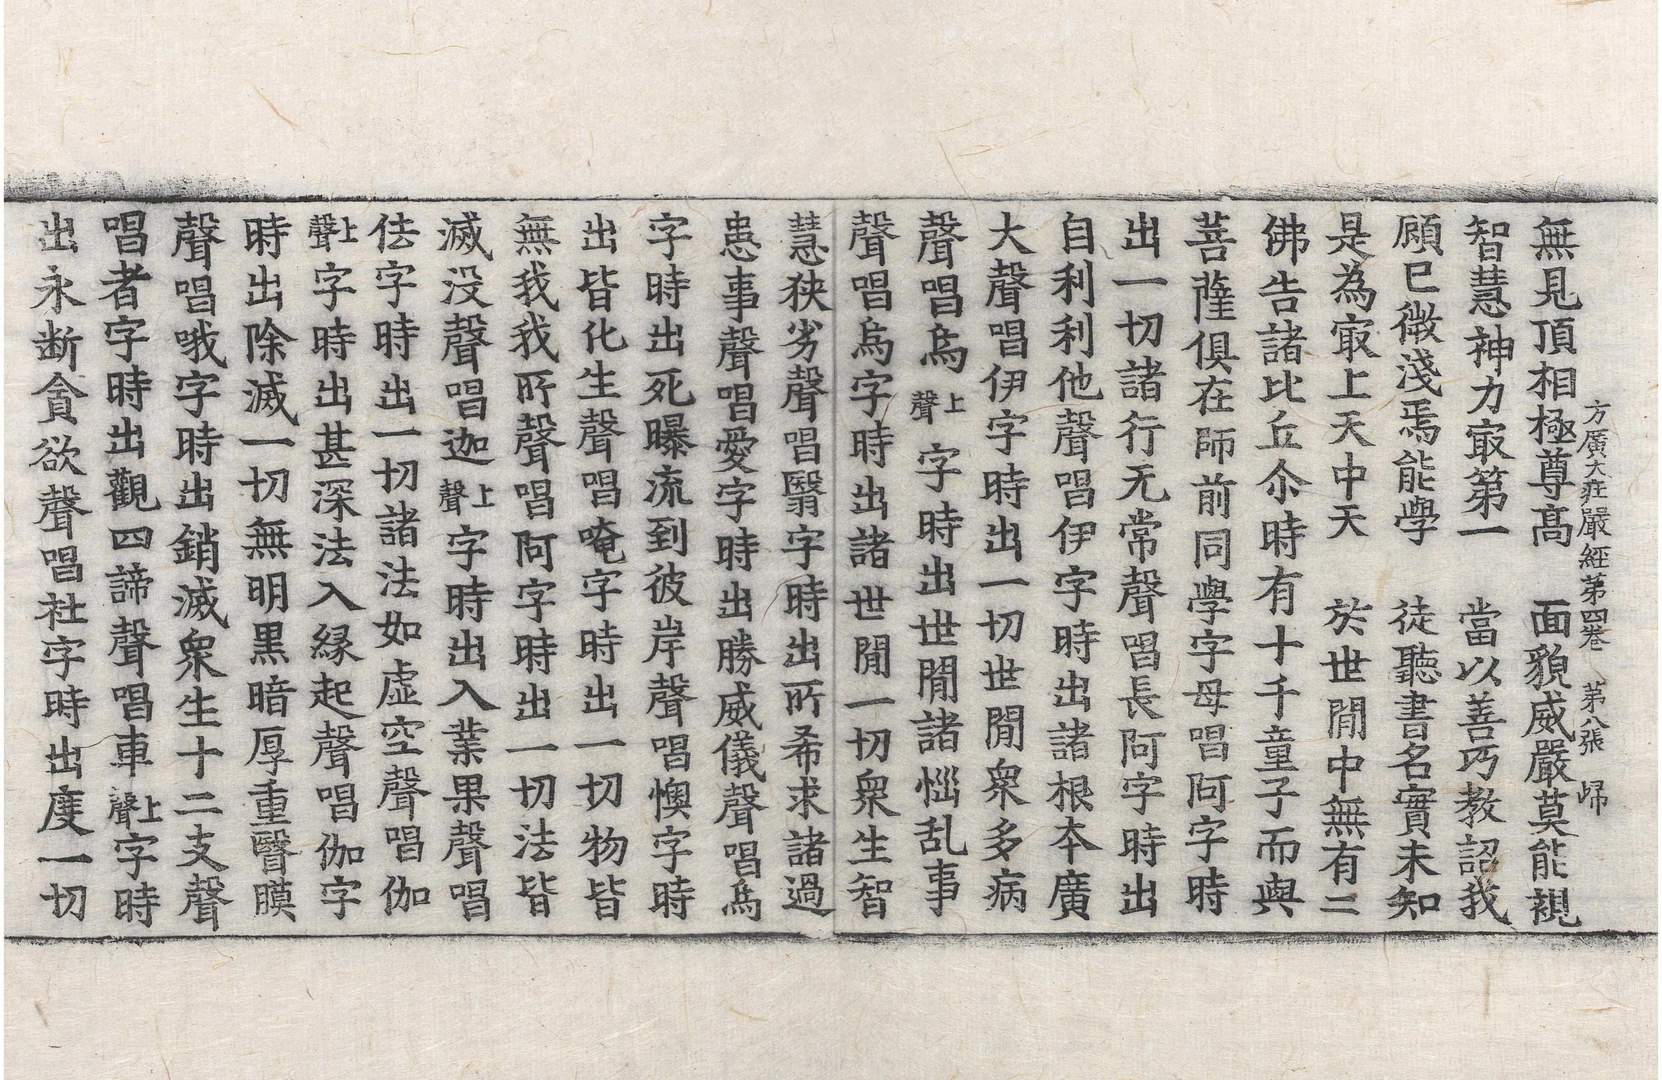 方廣大莊嚴經第四卷　第八張　歸
無見頂相極尊髙　面貌威嚴莫能視
智慧神力㝡第一　當以善巧教詔我
顧已微淺焉能學　徒聽書名實未知
是為㝡上天中天　於世閒中無有二
佛告諸比丘尒時有十千童子而與
菩薩俱在師前同學字母唱阿字時
出一切諸行无常聲唱長阿字時出
自利利他聲唱伊字時出諸根本廣
大聲唱伊字時出一切世閒衆多病
聲唱烏上聲字時出世閒諸惱乱事
聲唱烏字時出諸世閒一切衆生智
慧狹劣聲唱翳字時出所希求諸過
患事聲唱愛字時出勝威儀聲唱烏
字時出死曝流到彼岸聲唱懊字時
出皆化生聲唱唵字時出一切物皆
無我我所聲唱阿字時出一切法皆
滅没聲唱迦上聲字時出入業果聲唱
佉字時出一切諸法如虛空聲唱伽
上聲字時出甚深法入縁起聲唱伽字
時出除滅一切無明黒暗厚重瞖膜
聲唱哦字時出銷滅衆生十二支聲
唱者字時出觀四諦聲唱車上聲字時
出永断貪欲聲唱社字時出度一切